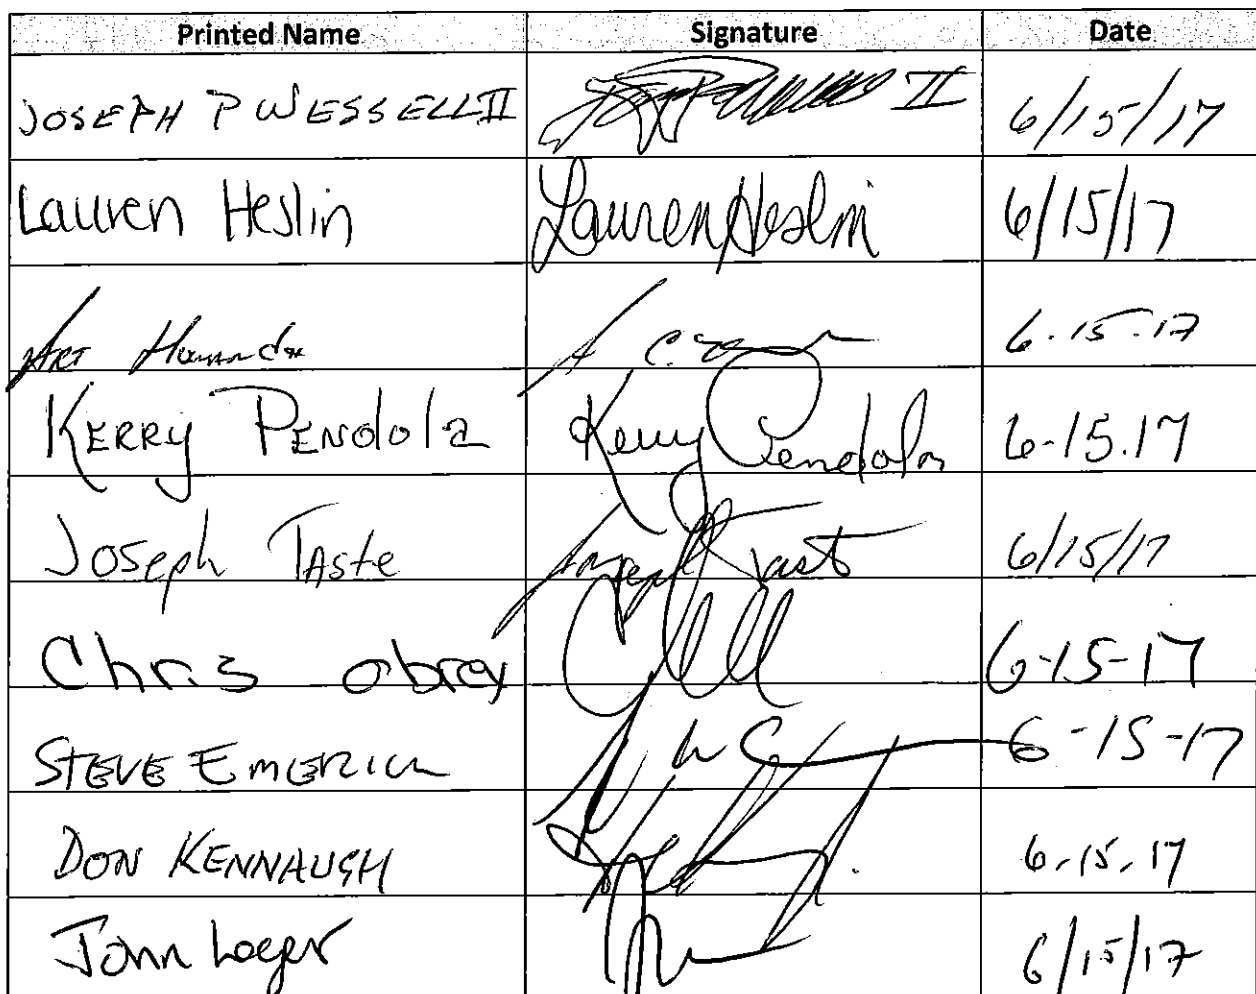 Printed Name Signature Date
JOSEPH P WESSELL II II 6/15/17
Lauren Heslin Lauren Heslin 6/15/17
Art 6.15.17
KERRY PENdola Kerry Pendola 6-15.17
Joseph TAste Joseph Tast 6/15/17
Chris obrey 6-15-17
STEVE EMERICK 6-15-17
DON KENNAUGH 6.15.17
John Loger 6/15/17